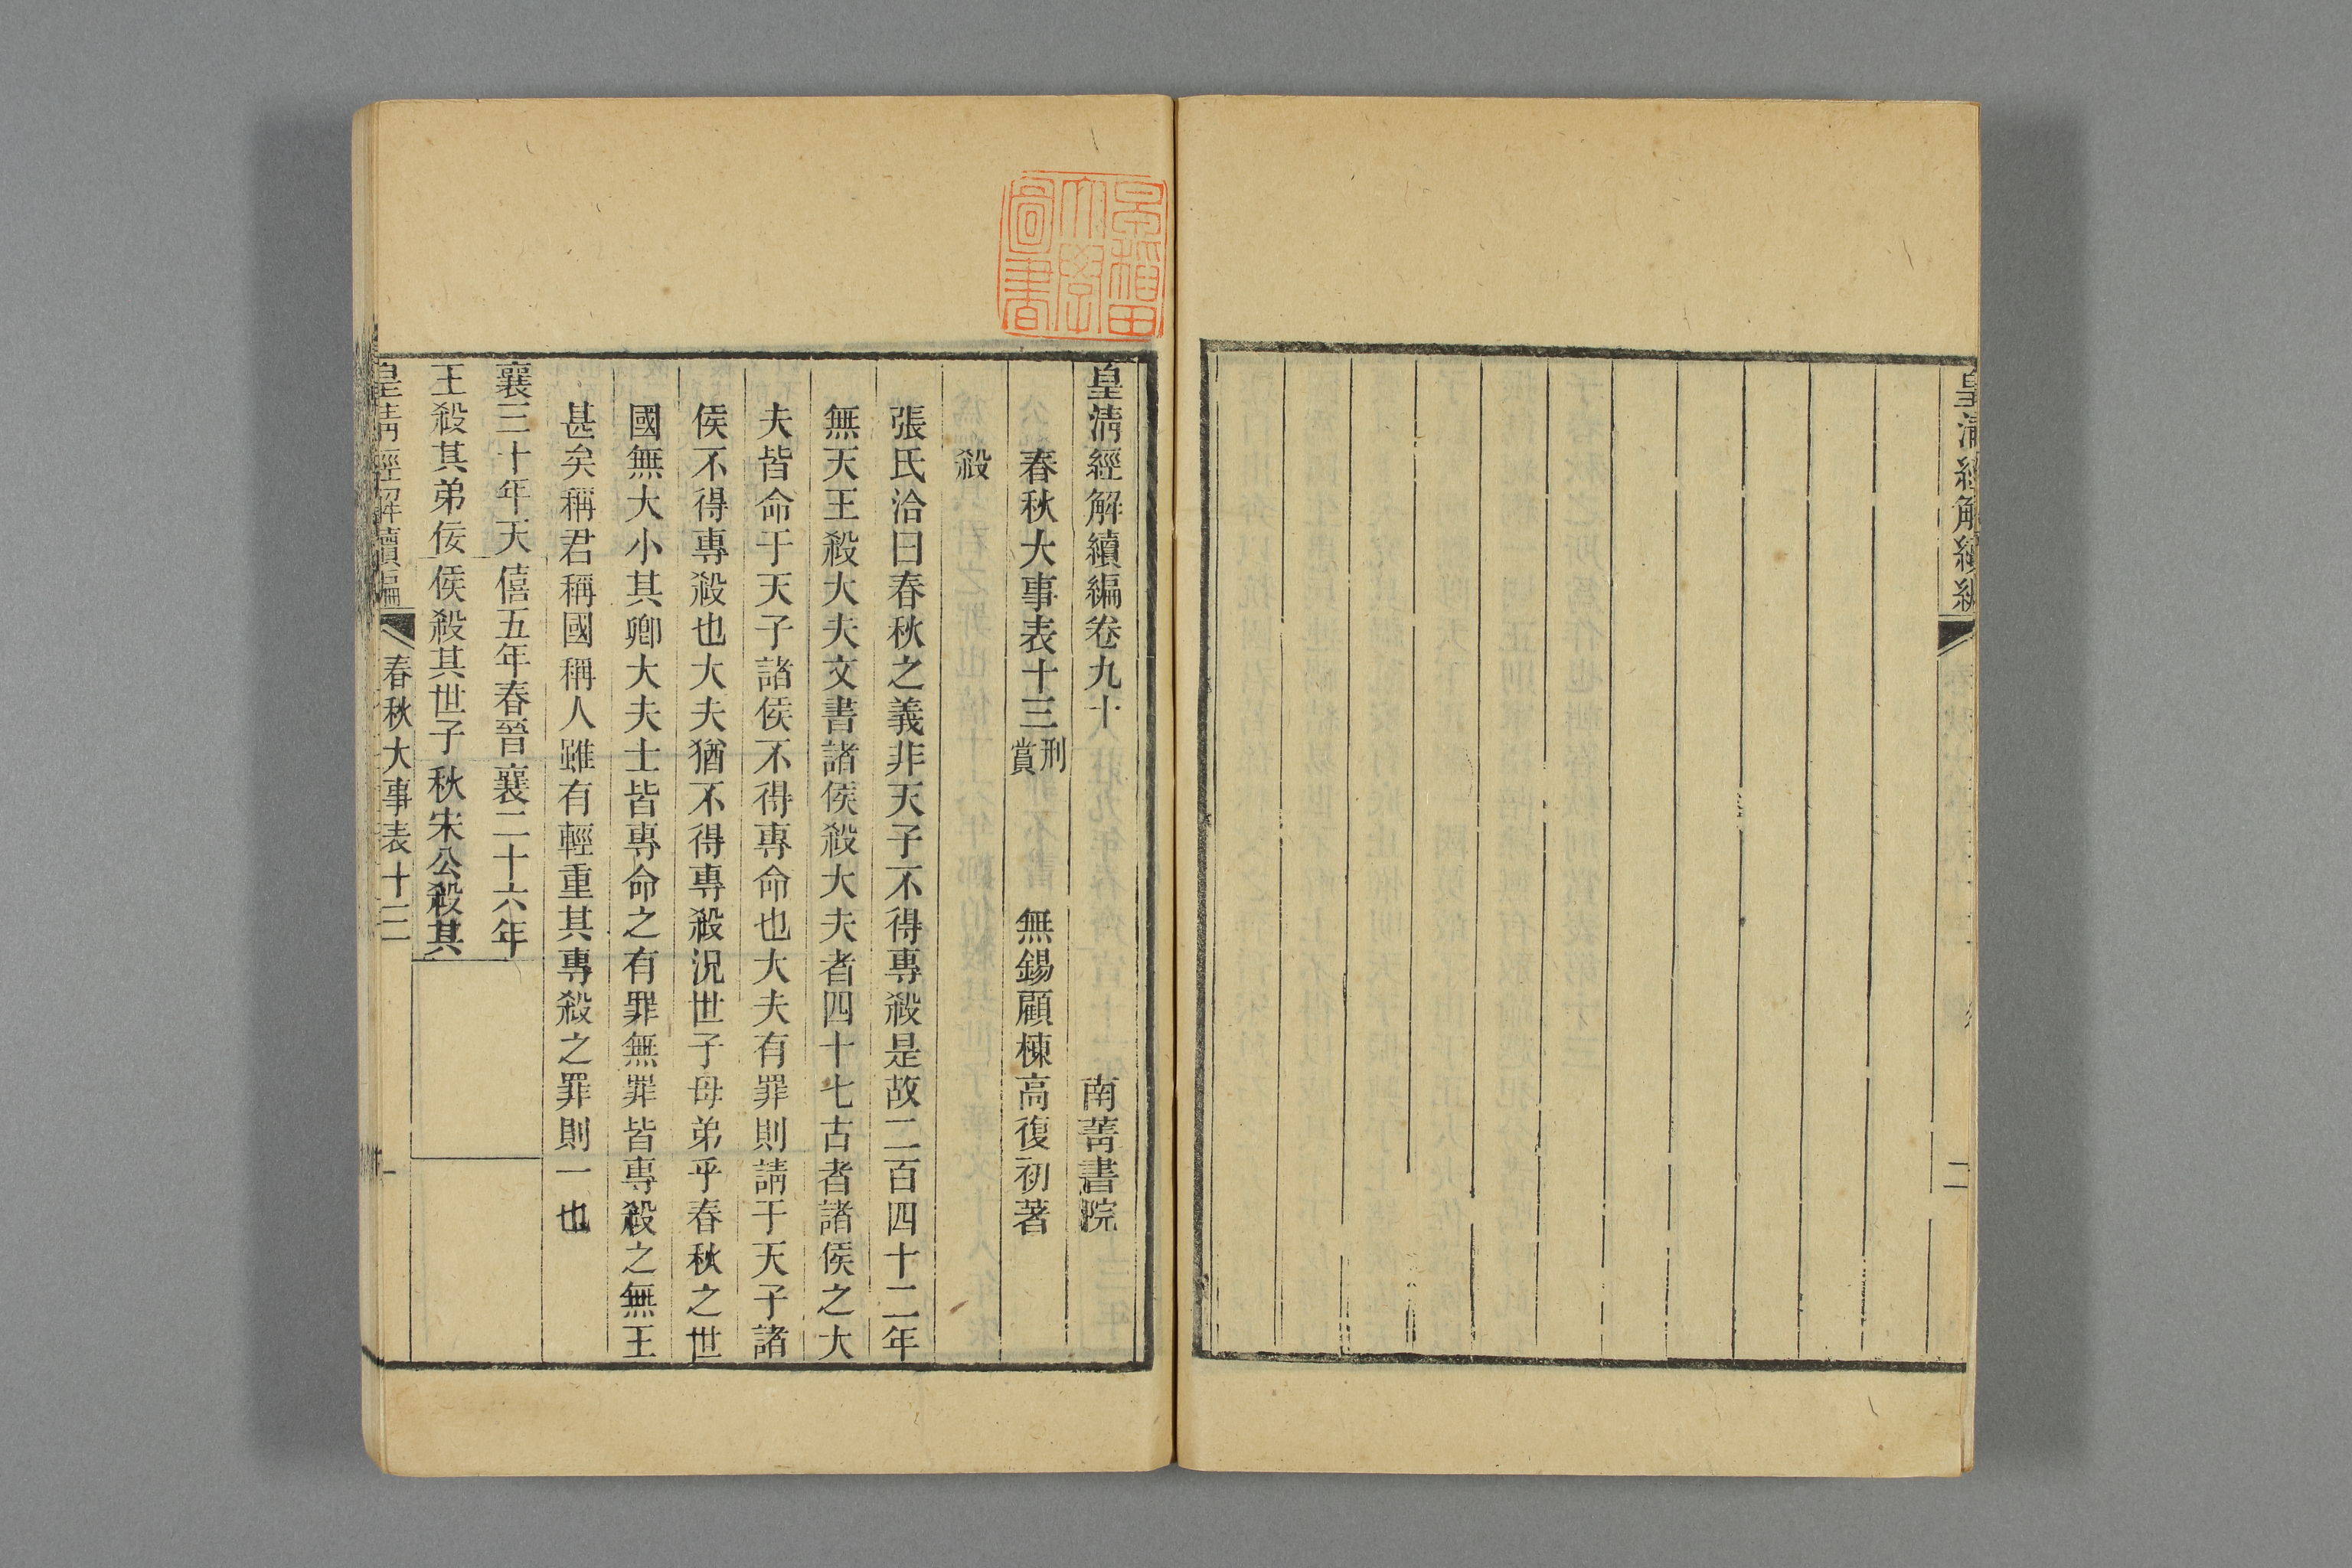 皇清經解續編
二
早稲田
大學
圖書
皇清經解續編卷九十 南菁書院
春秋大事表十三刑賞 無錫顧棟高復初著
殺
張氏洽曰春秋之義非天子不得專殺是故二百四十二年
無天王殺大夫文書諸侯殺大夫者四十七古者諸侯之大
夫皆命于天子諸侯不得專命也大夫有罪則請于天子諸
侯不得專殺也大夫猶不得專殺況世子母弟乎春秋之世
國無大小其卿大夫士皆專命之有罪無罪皆專殺之無王
甚矣稱君稱國稱人雖有輕重其專殺之罪則一也
襄三十年天
王殺其弟佞
僖五年春晉
侯殺其世子
襄二十六年
秋宋公殺其
皇清經解續編 春秋大事表十三 一